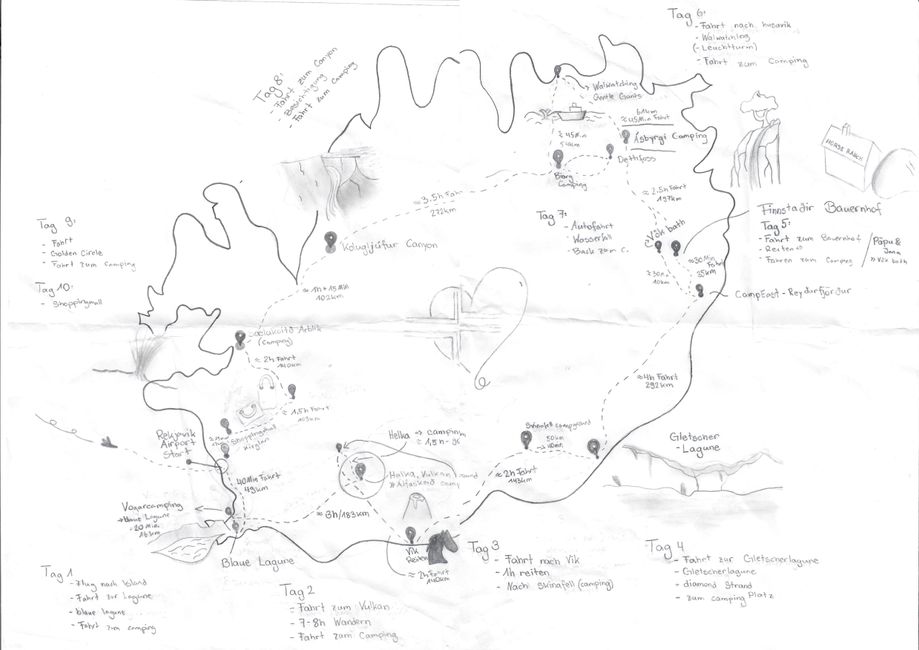 Tag 6:
- Fahrt nach husavik
- Walwatching
(- Leuchtturm)
- Fahrt zum Camping
Tag 8:
- Fahrt zum Canyon
- Besichtigung
- Fahrt zum Camping
Walwatching
Gentle Giants
≈ 45Min Fahrt
Ásbyrgi Camping
≈ 45Min
Dethfoss
Bjarg
Camping
HORSE RANCH
≈ 3.5h Fahrt
272km
≈ 2.5h Fahrt
157km
Finnstadir Bauernhof
Tag 5:
- Fahrt zum Bauernhof
- Reiten
- Fahren zum Camping
Papu &
Jana
Vök bath
Tag 7:
- Autofahrt
- Wasserfall
- Back zum C.
Vök bath
≈ 30Min
Fahrt
35km
CampEast - Reydarfjördur
Tag 9:
- Fahrt
- Golden Circle
- Fahrt zum Camping
Tag 10:
- Shoppingmall
Kolugljúfur Canyon
≈ 1h + 15 Min
102km
(Camping)
≈ 2h Fahrt
140km
≈ 1,5h Fahrt
≈ 4h Fahrt
292km
Shoppingmall
Kinglan
Rekjavik
Airport
Start
40Min Fahrt
49km
Helka → camping
≈ 1,5h
Helka, Vulkan
50km
Gletscher
- Lagune
≈ 2h Fahrt
143km
Voxarcamping
→ blaue Lagune
- 20 Min
≈ 3h/183km
Blaue Lagune
Vik
Reiten
≈ 2h Fahrt
140km
Tag 1
- Flug nach Island
- Fahrt zur Lagune
- blaue lagune
- Fahrt zum camping
Tag 2
- Fahrt zum Vulkan
- 7-8h Wandern
- Fahrt zum Camping
Tag 3
- Fahrt nach Vik
- 1h reiten
- Nach Skinafell (camping)
Tag 4
- Fahrt zur Gletscherlagune
- Gletscherlagune
- diamond Strand
- zum camping Platz